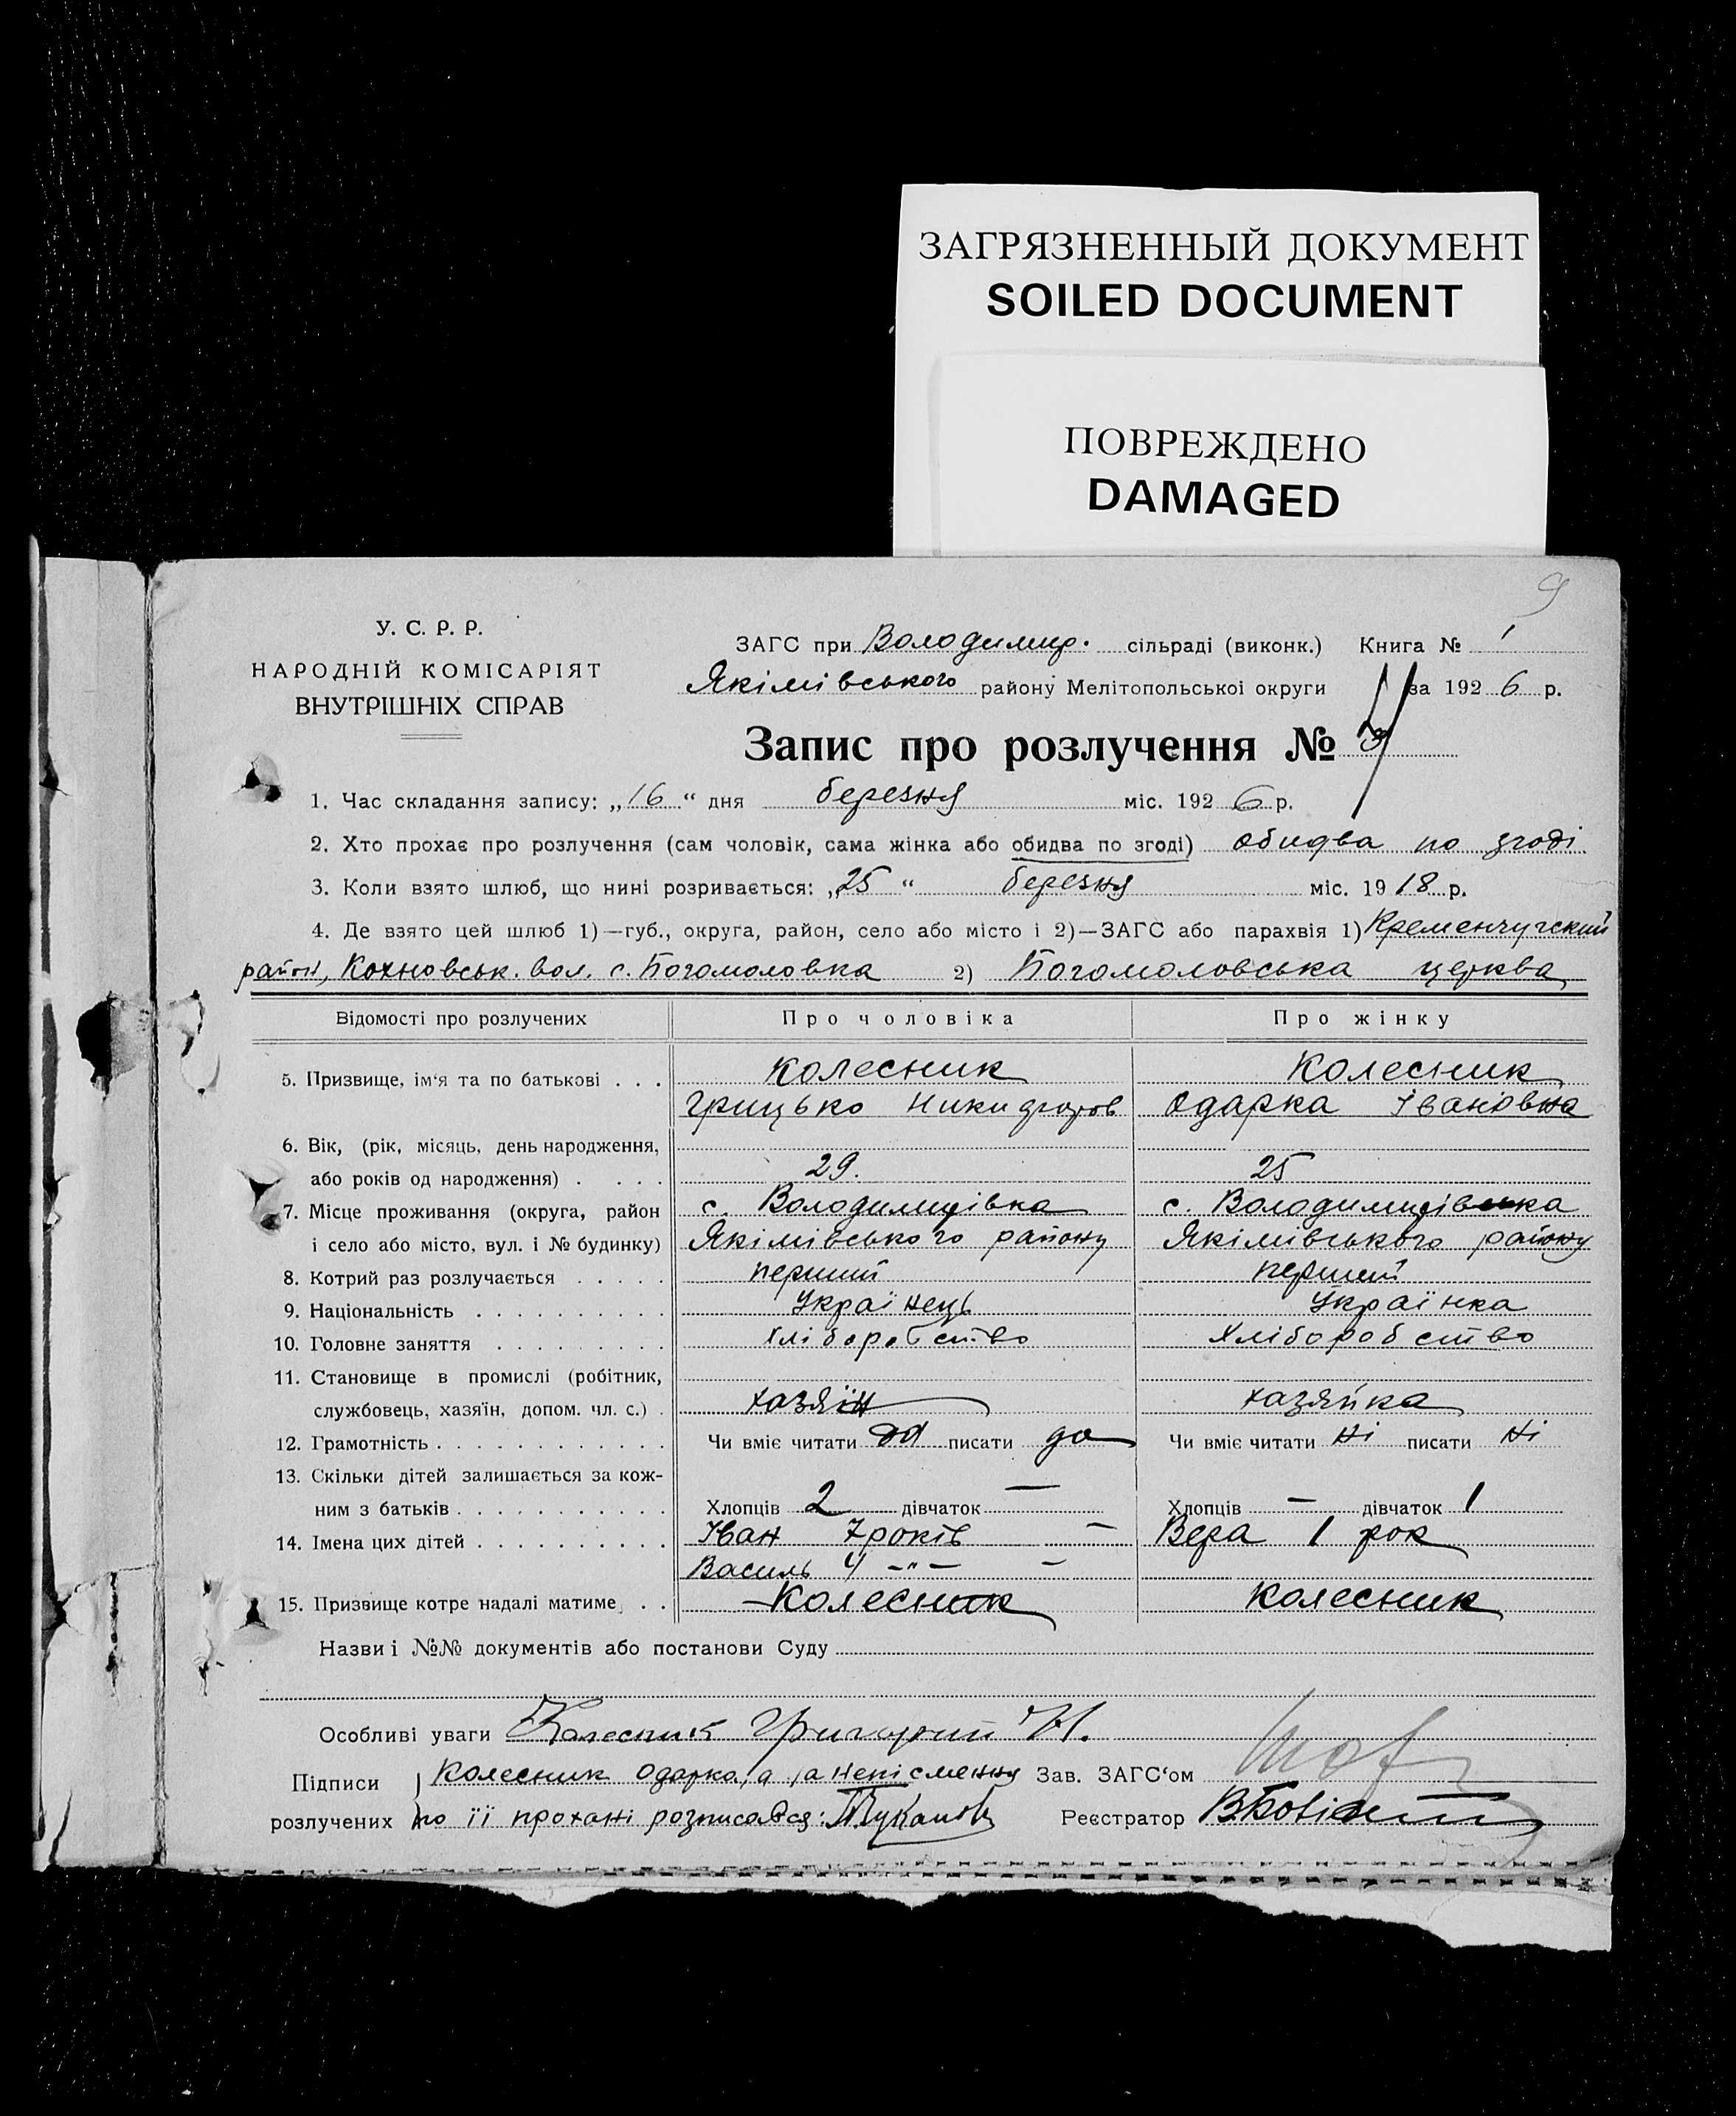 ЗАГРЯЗНЕННЫЙ ДОКУМЕНТ
SOILED DOCUMENT
ПОВРЕЖДЕНО
DAMAGED
9
У. С. Р. Р.
НАРОДНІЙ КОМІСАРІЯТ
ВНУТРІШНІХ СПРАВ
ЗАГС при Володимир. сільраді (виконк.) Книга № 1
Якімівського району Мелітопольської округи за 1926 р.
Запис про розлучення №
1. Час складання запису: „16“ дня березня міс. 1926 р.
2. Хто прохає про розлучення (сам чоловік, сама жінка або обидва по згоді) обидва по згоді
3. Коли взято шлюб, що нині розривається: „25“ березня міс. 1918 р.
4. Де взято цей шлюб 1)—губ., округа, район, село або місто і 2)—ЗАГС або парахвія 1) Кременчугский
район, Кохновськ. вол. с. Богомоловка 2) Богомоловська церква
Відомості про розлучених Про чоловіка Про жінку
5. Призвище, ім‘я та по батькові . . . Колесник Колесник
Грицько Никифоров Одарка Івановна
6. Вік, (рік, місяць, день народження,
або років од народження) . . . . 29. 25
7. Місце проживання (округа, район с. Володимирівка с. Володимирівка
і село або місто, вул. і № будинку) Якімівського району Якімівського району
8. Котрий раз розлучається . . . . . перший перший
9. Національність . . . . . . . . . . Українець Українка
10. Головне заняття . . . . . . . . . хліборобство Хліборобство
11. Становище в промислі (робітник,
службовець, хазяїн, допом. чл. с.) . хазяїн хазяйка
12. Грамотність . . . . . . . . . . . . Чи вміє читати да писати да Чи вміє читати ні писати ні
13. Скільки дітей залишається за кож-
ним з батьків . . . . . . . . . . . Хлопців 2 дівчаток — Хлопців — дівчаток 1
14. Імена цих дітей . . . . . . . . . . Іван 7 років — Вера 1 рок
Василь 4 –„– —
15. Призвище котре надалі матиме . . Колесник Колесник
Назви і №№ документів або постанови Суду
Особливі уваги Колесник Григорий Н.
Підписи Колесник Одарка, а за неписменну Зав. ЗАГС‘ом
розлучених по її прохані розписався: Реєстратор